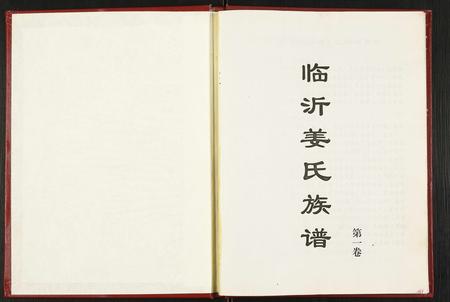 临沂姜氏族谱
第一卷